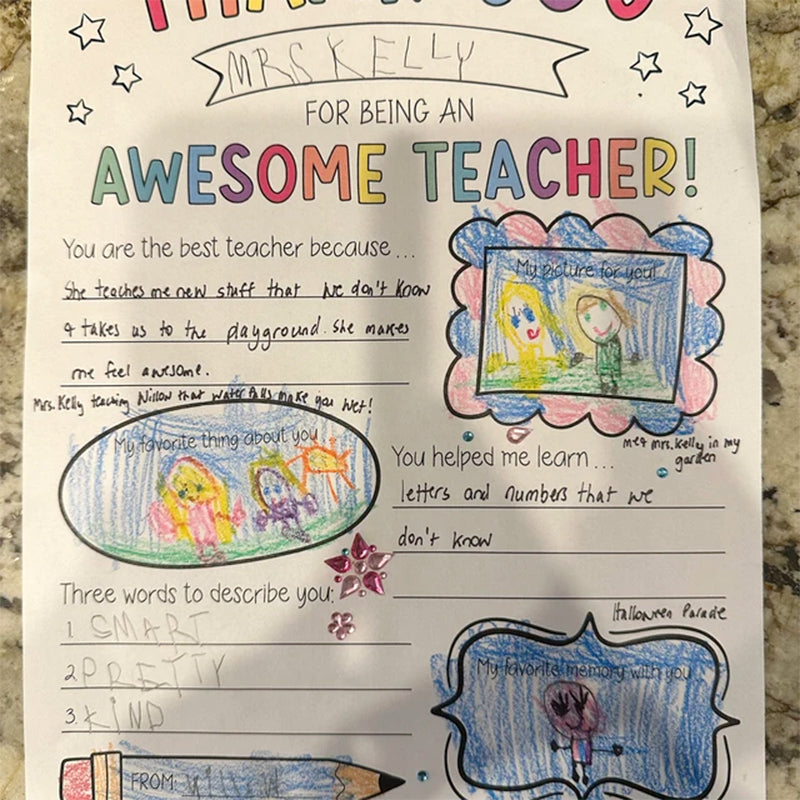 THANK YOU
MRS KELLY
FOR BEING AN
AWESOME TEACHER!
You are the best teacher because ...
She teaches me new stuff that we don't know
& takes us to the playground. She makes
me feel awesome.
My picture for you!
me & mrs. Kelly in my
garden
Mrs. Kelly teaching Willow that water falls make you wet!
My favorite thing about you
You helped me learn ...
letters and numbers that we
don't know
Three words to describe you:
1. SMART
2. PRETTY
3. KIND
Halloween Parade
My favorite memory with you
FROM: WILLOW